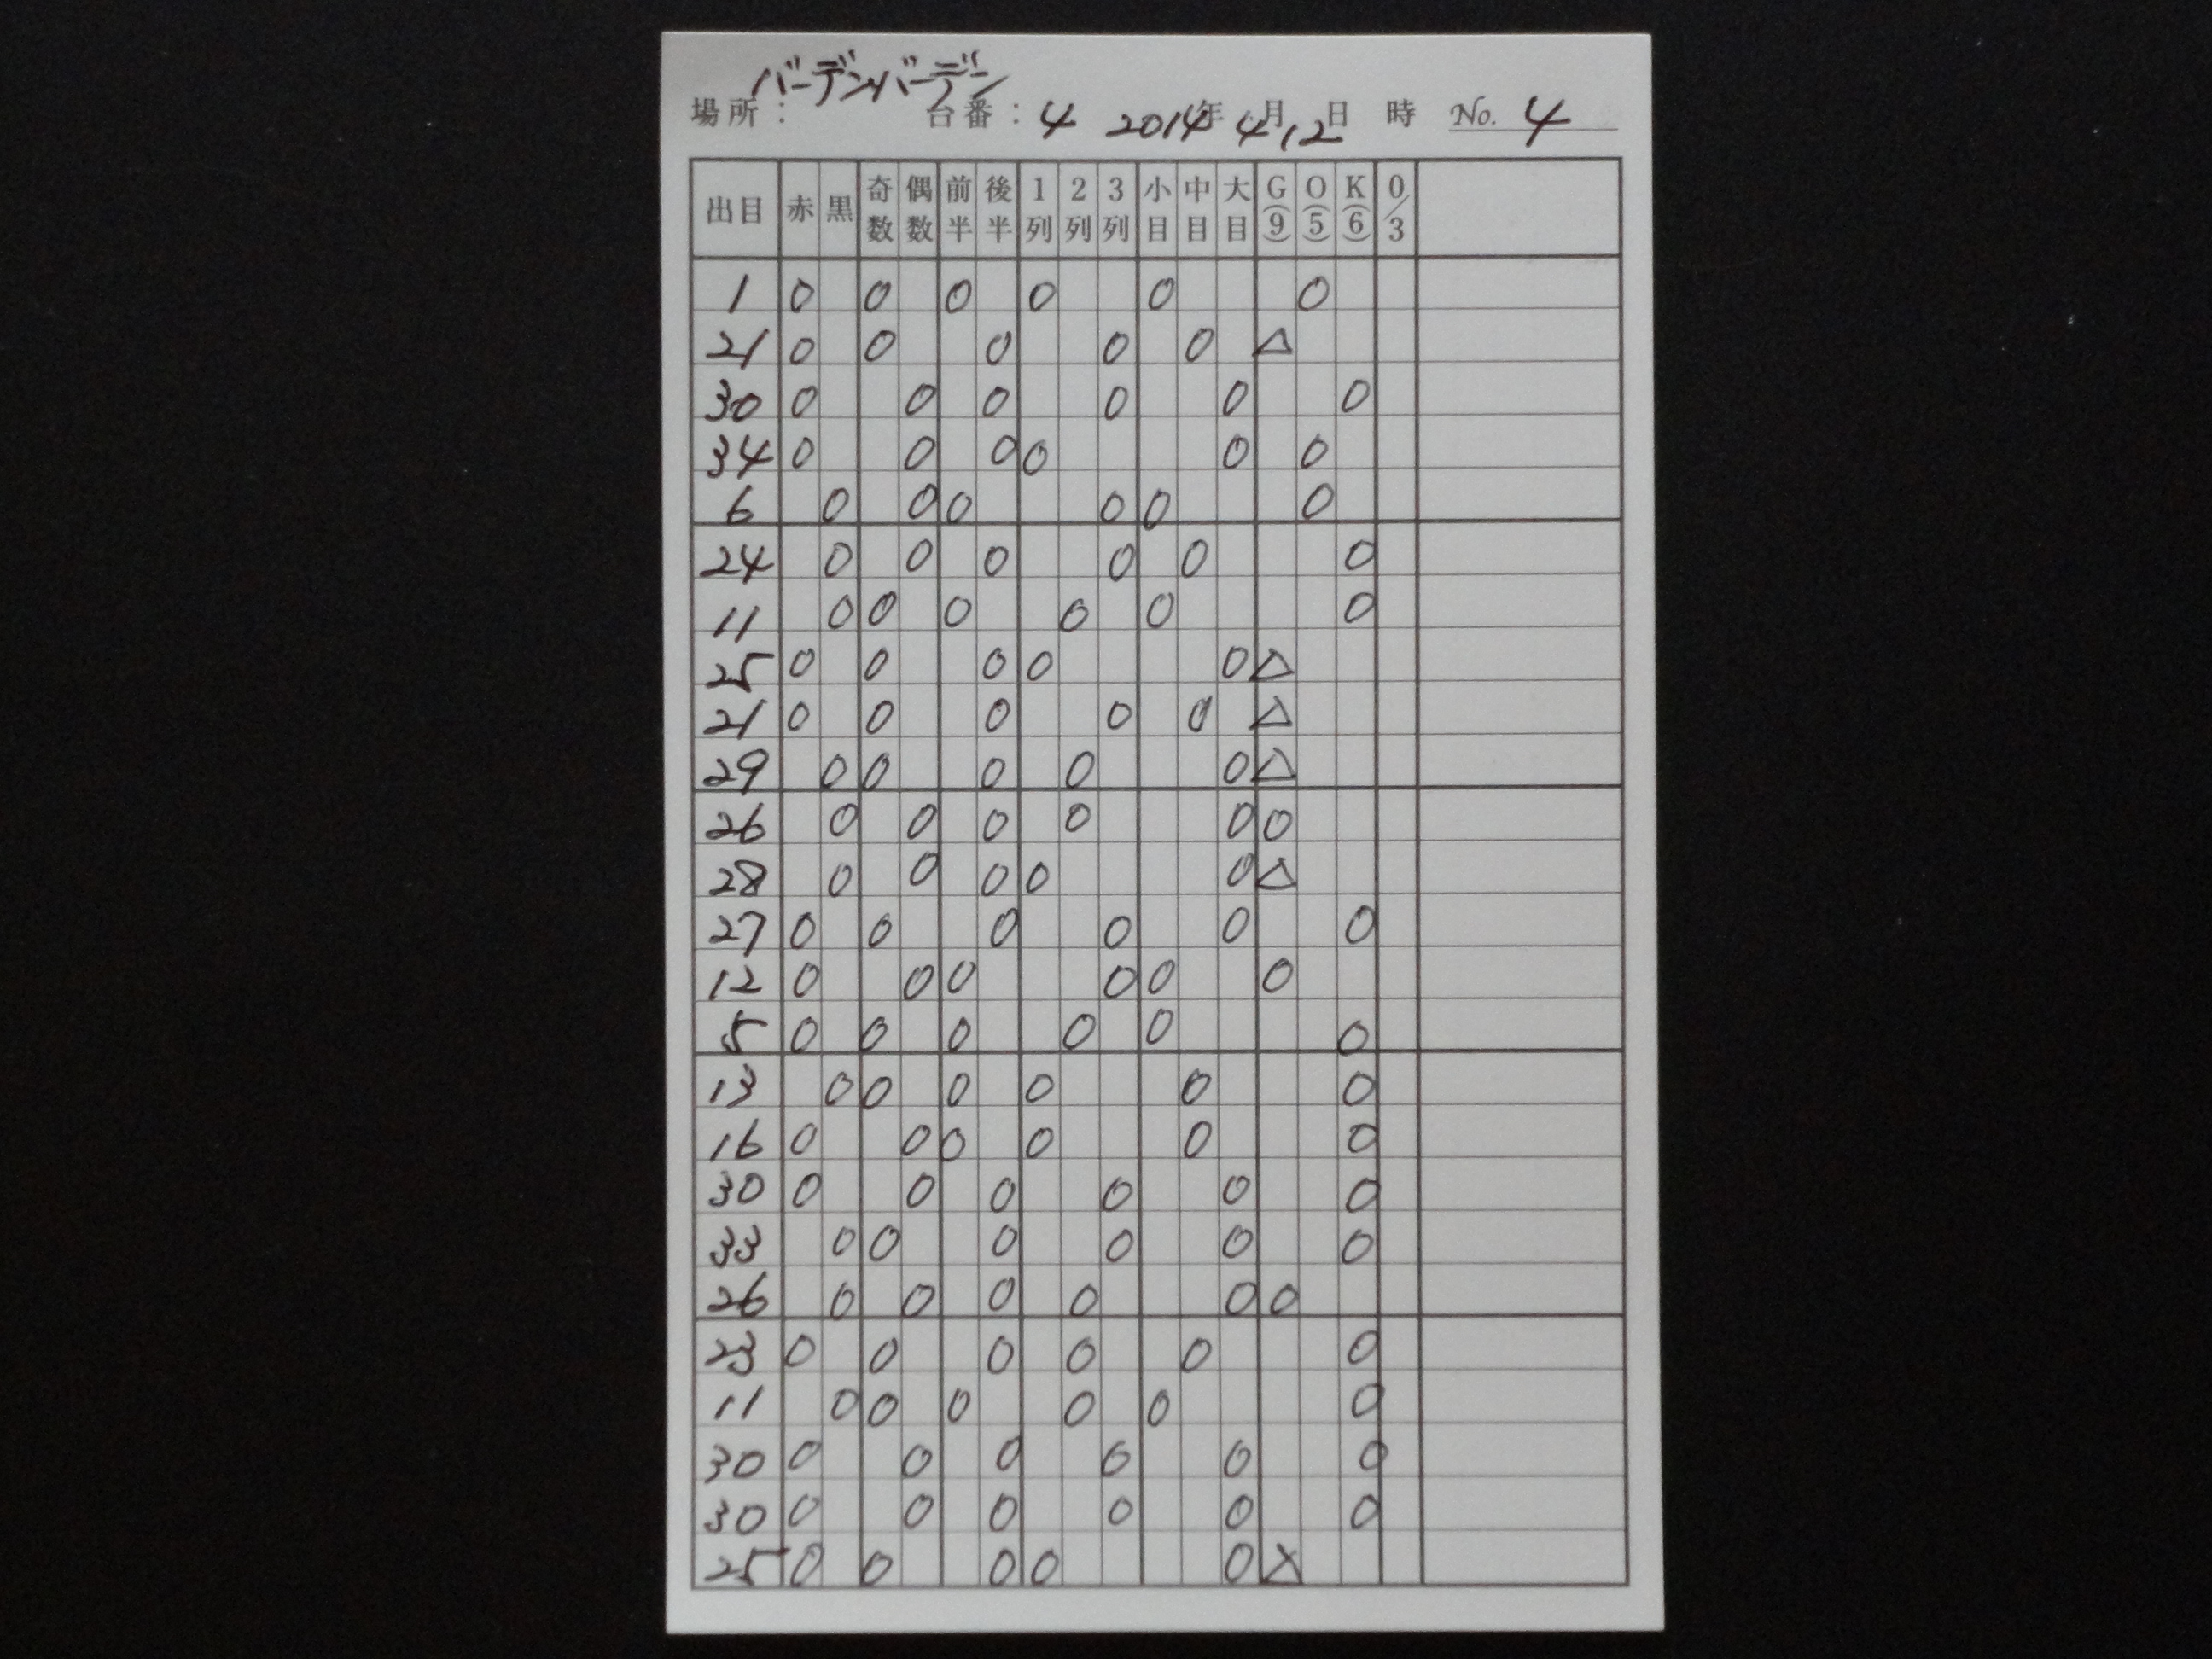 バーデンバーデン
場所： 台番：4 2014年 4月12日 時 No. 4
出目 赤 黒 奇数 偶数 前半 後半 1列 2列 3列 小目 中目 大目 G(9) O(5) K(6) 0/3
1 0 0 0 0 0 0
21 0 0 0 0 0 △
30 0 0 0 0 0 0
34 0 0 0 0 0 0
6 0 0 0 0 0 0
24 0 0 0 0 0 0
11 0 0 0 0 0 0
25 0 0 0 0 0 △
21 0 0 0 0 0 △
29 0 0 0 0 0 △
26 0 0 0 0 0 0
28 0 0 0 0 0 △
27 0 0 0 0 0 0
12 0 0 0 0 0 0
5 0 0 0 0 0 0
13 0 0 0 0 0 0
16 0 0 0 0 0 0
30 0 0 0 0 0 0
33 0 0 0 0 0 0
26 0 0 0 0 0 0
23 0 0 0 0 0 0
11 0 0 0 0 0 0
30 0 0 0 0 0 0
30 0 0 0 0 0 0
25 0 0 0 0 0 △